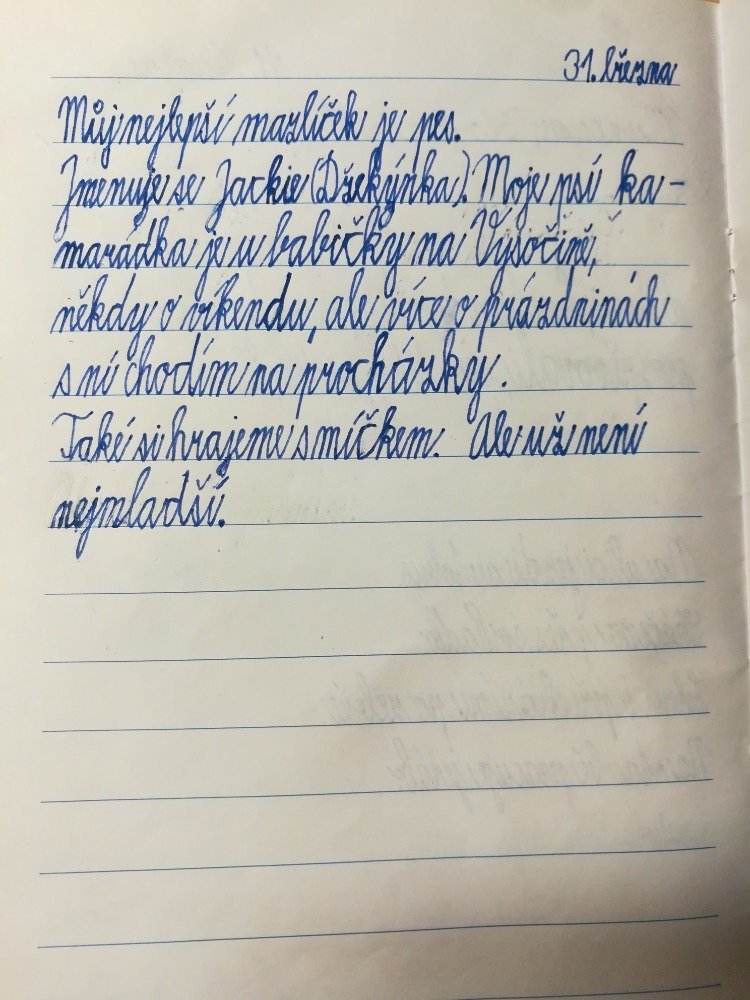 31. března
Můj nejlepší mazlíček je pes.
Jmenuje se Jackie (Džekýnka). Moje psí ka-
marádka je u babičky na Vysočině,
někdy o víkendu, ale více o prázdninách
s ní chodím na procházky.
Také si hrajeme s míčkem. Ale už není
nejmladší.